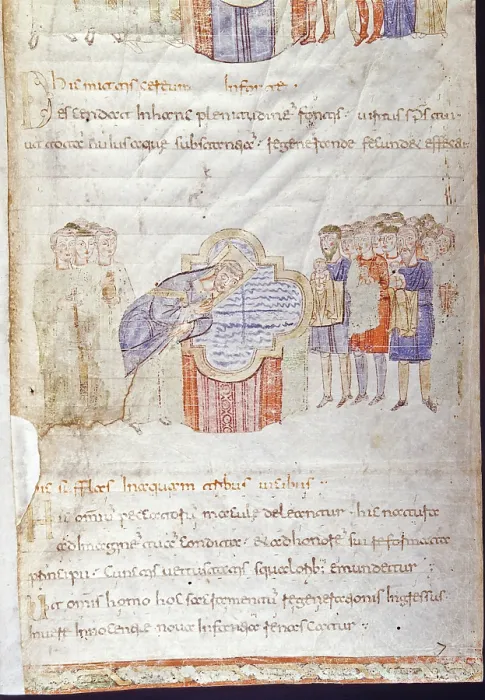 hic mittis cereum In fonte
Descendat In hanc plenitudinē fontis · virtus sp̄s tui ·
ut totā huius aque substantiā · regenerandi fecundet effectu
hic sufflas In aquam tribus vicibus
Hic omniū peccatorū macule deleantur · hic natura
ad Imaginē tuā condita · & ad honorē sui reformata
principii · cunctis vetustatis squalorib; emundetur
Ut omnis homo hoc sacramentū regenerationis Ingressus ·
In vere Innocentie nova Infantia renascatur